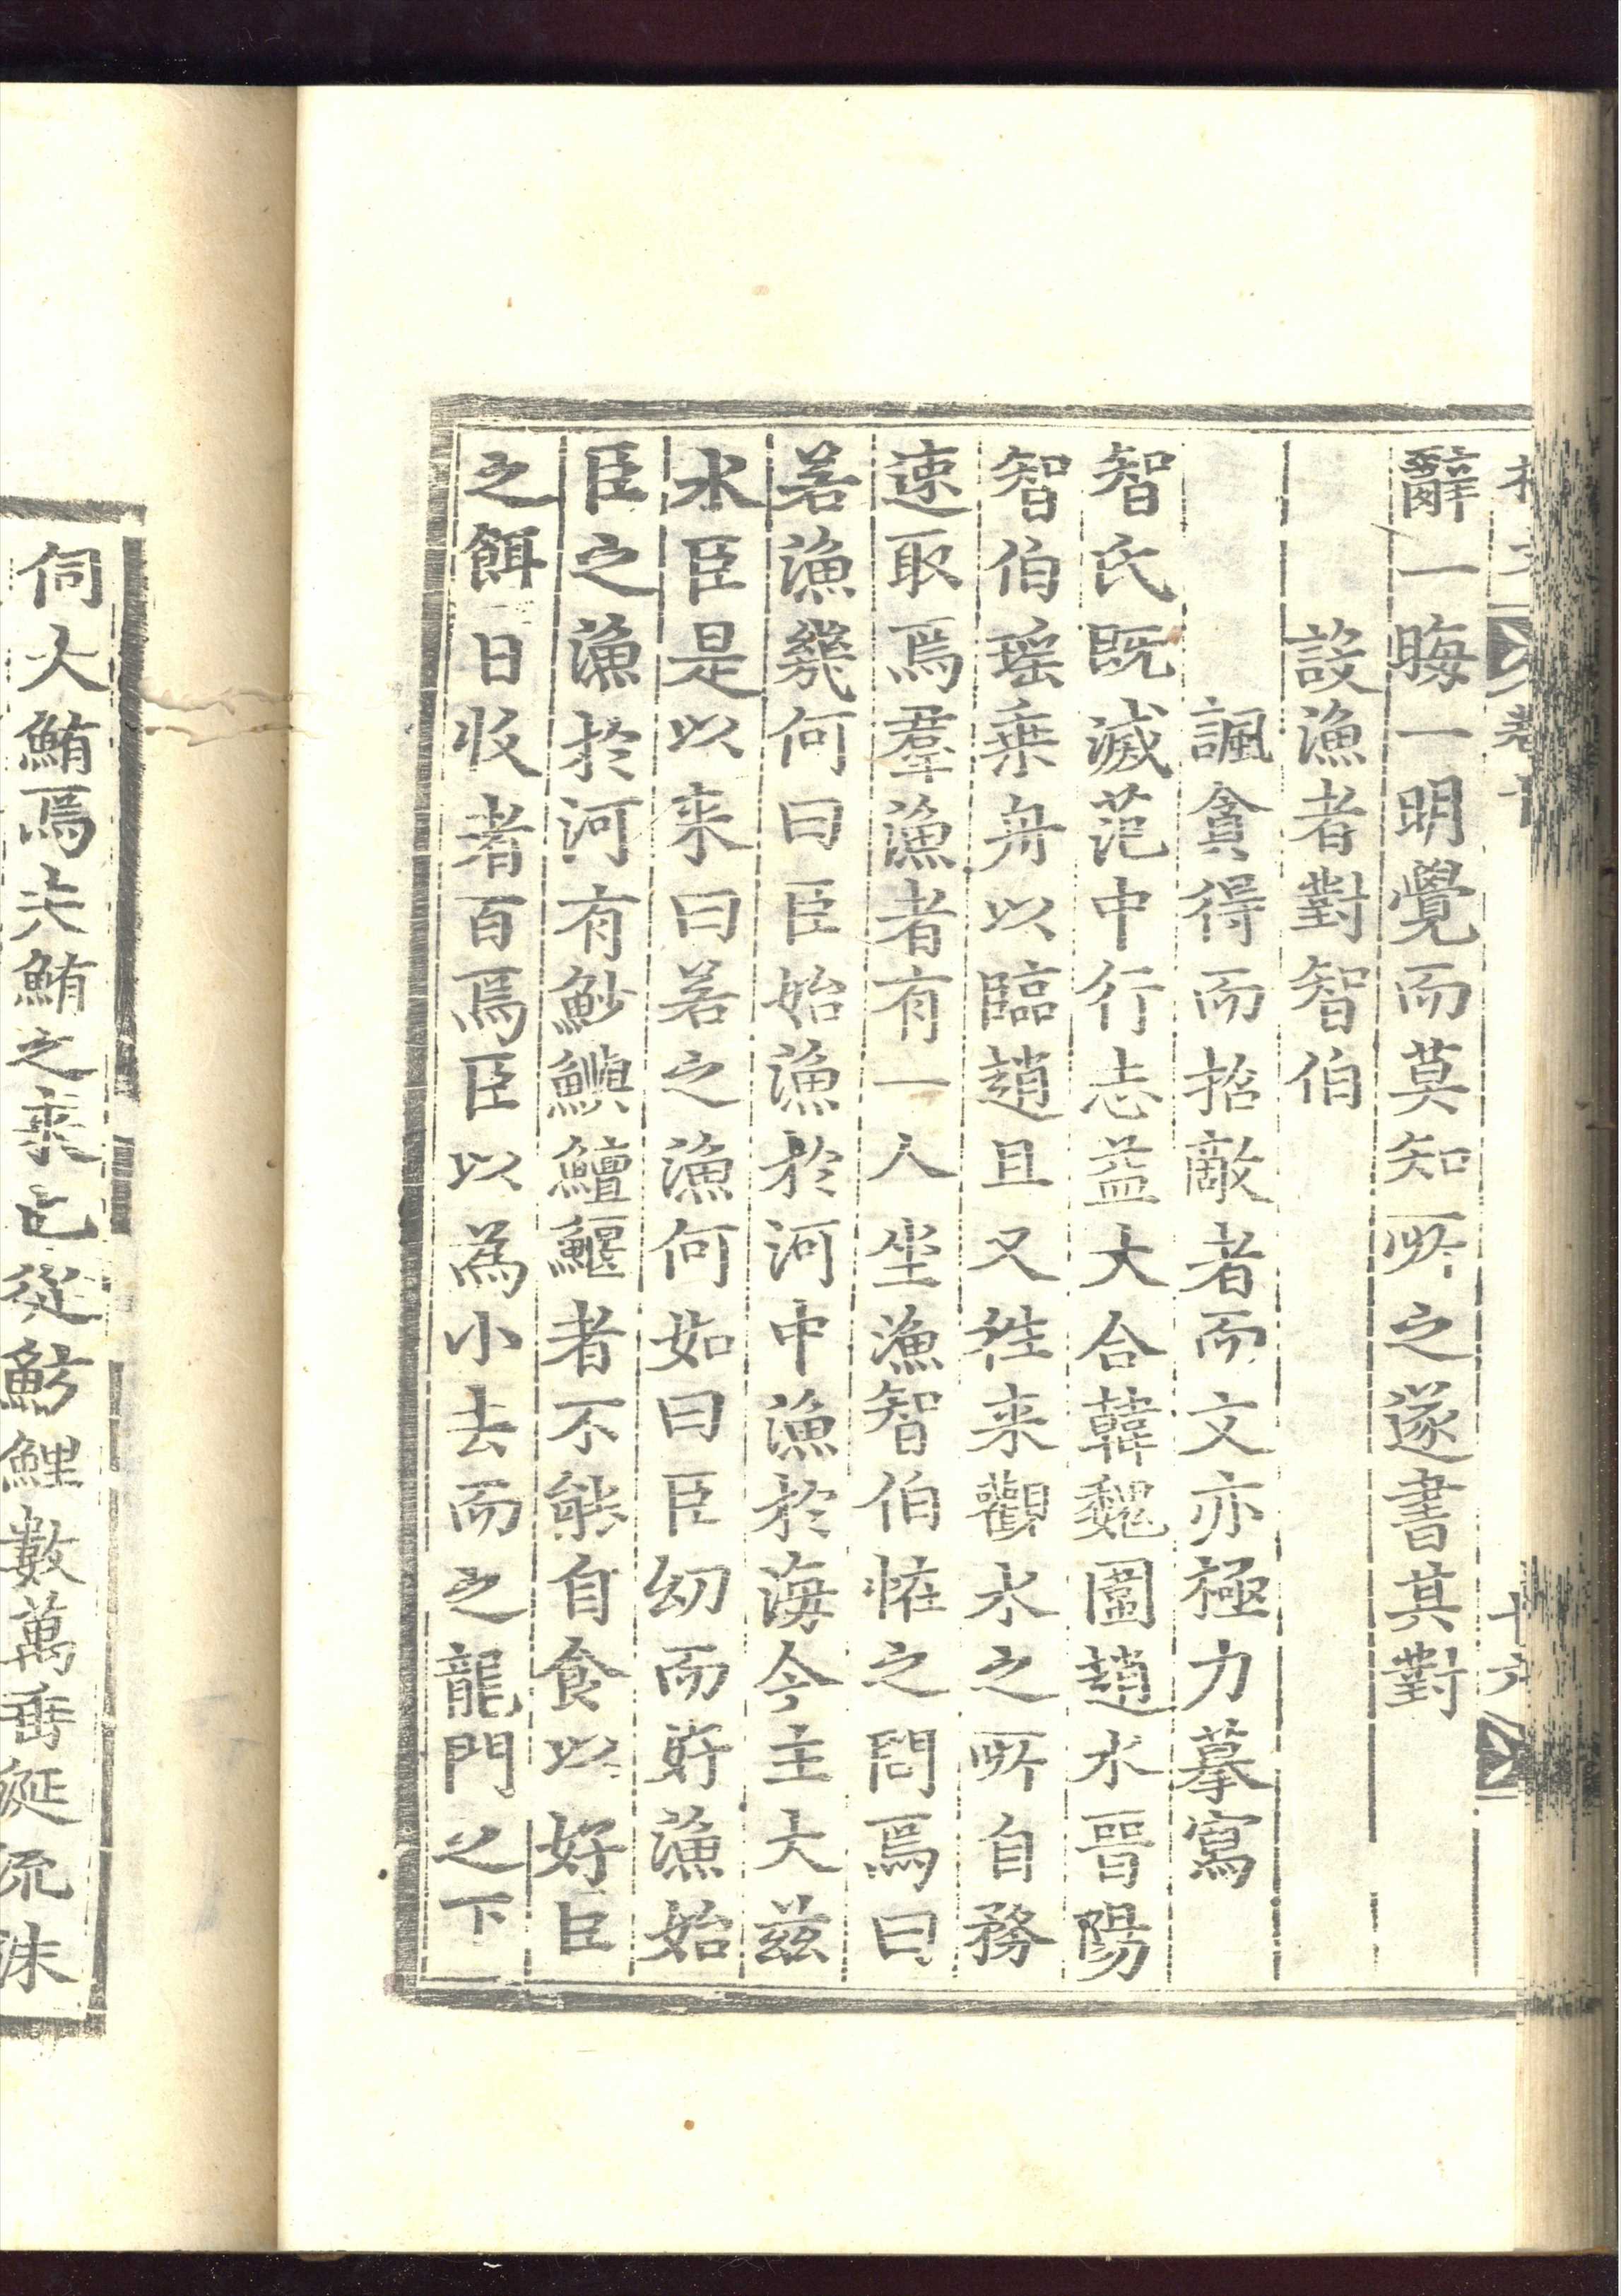 卷十
十六
辭一晦一明覺而莫知所之遂書其對
設漁者對智伯
諷貪得而招敵者而文亦極力摹寫
智氏既滅范中行志益大合韓魏圍趙水晉陽
智伯瑤乗舟以臨趙且又徃来觀水之所自務
速取焉羣漁者有一人坐漁智伯恠之問焉曰
若漁幾何曰臣始漁於河中漁於海今主大兹
水臣是以来曰若之漁何如曰臣幼而好漁始
臣之漁於河有魦鱮鱣鰋者不能自食以好臣
之餌日收者百焉臣以為小去而之龍門之下
伺大鮪焉夫鮪之来也從魴鯉數萬垂涎流沫